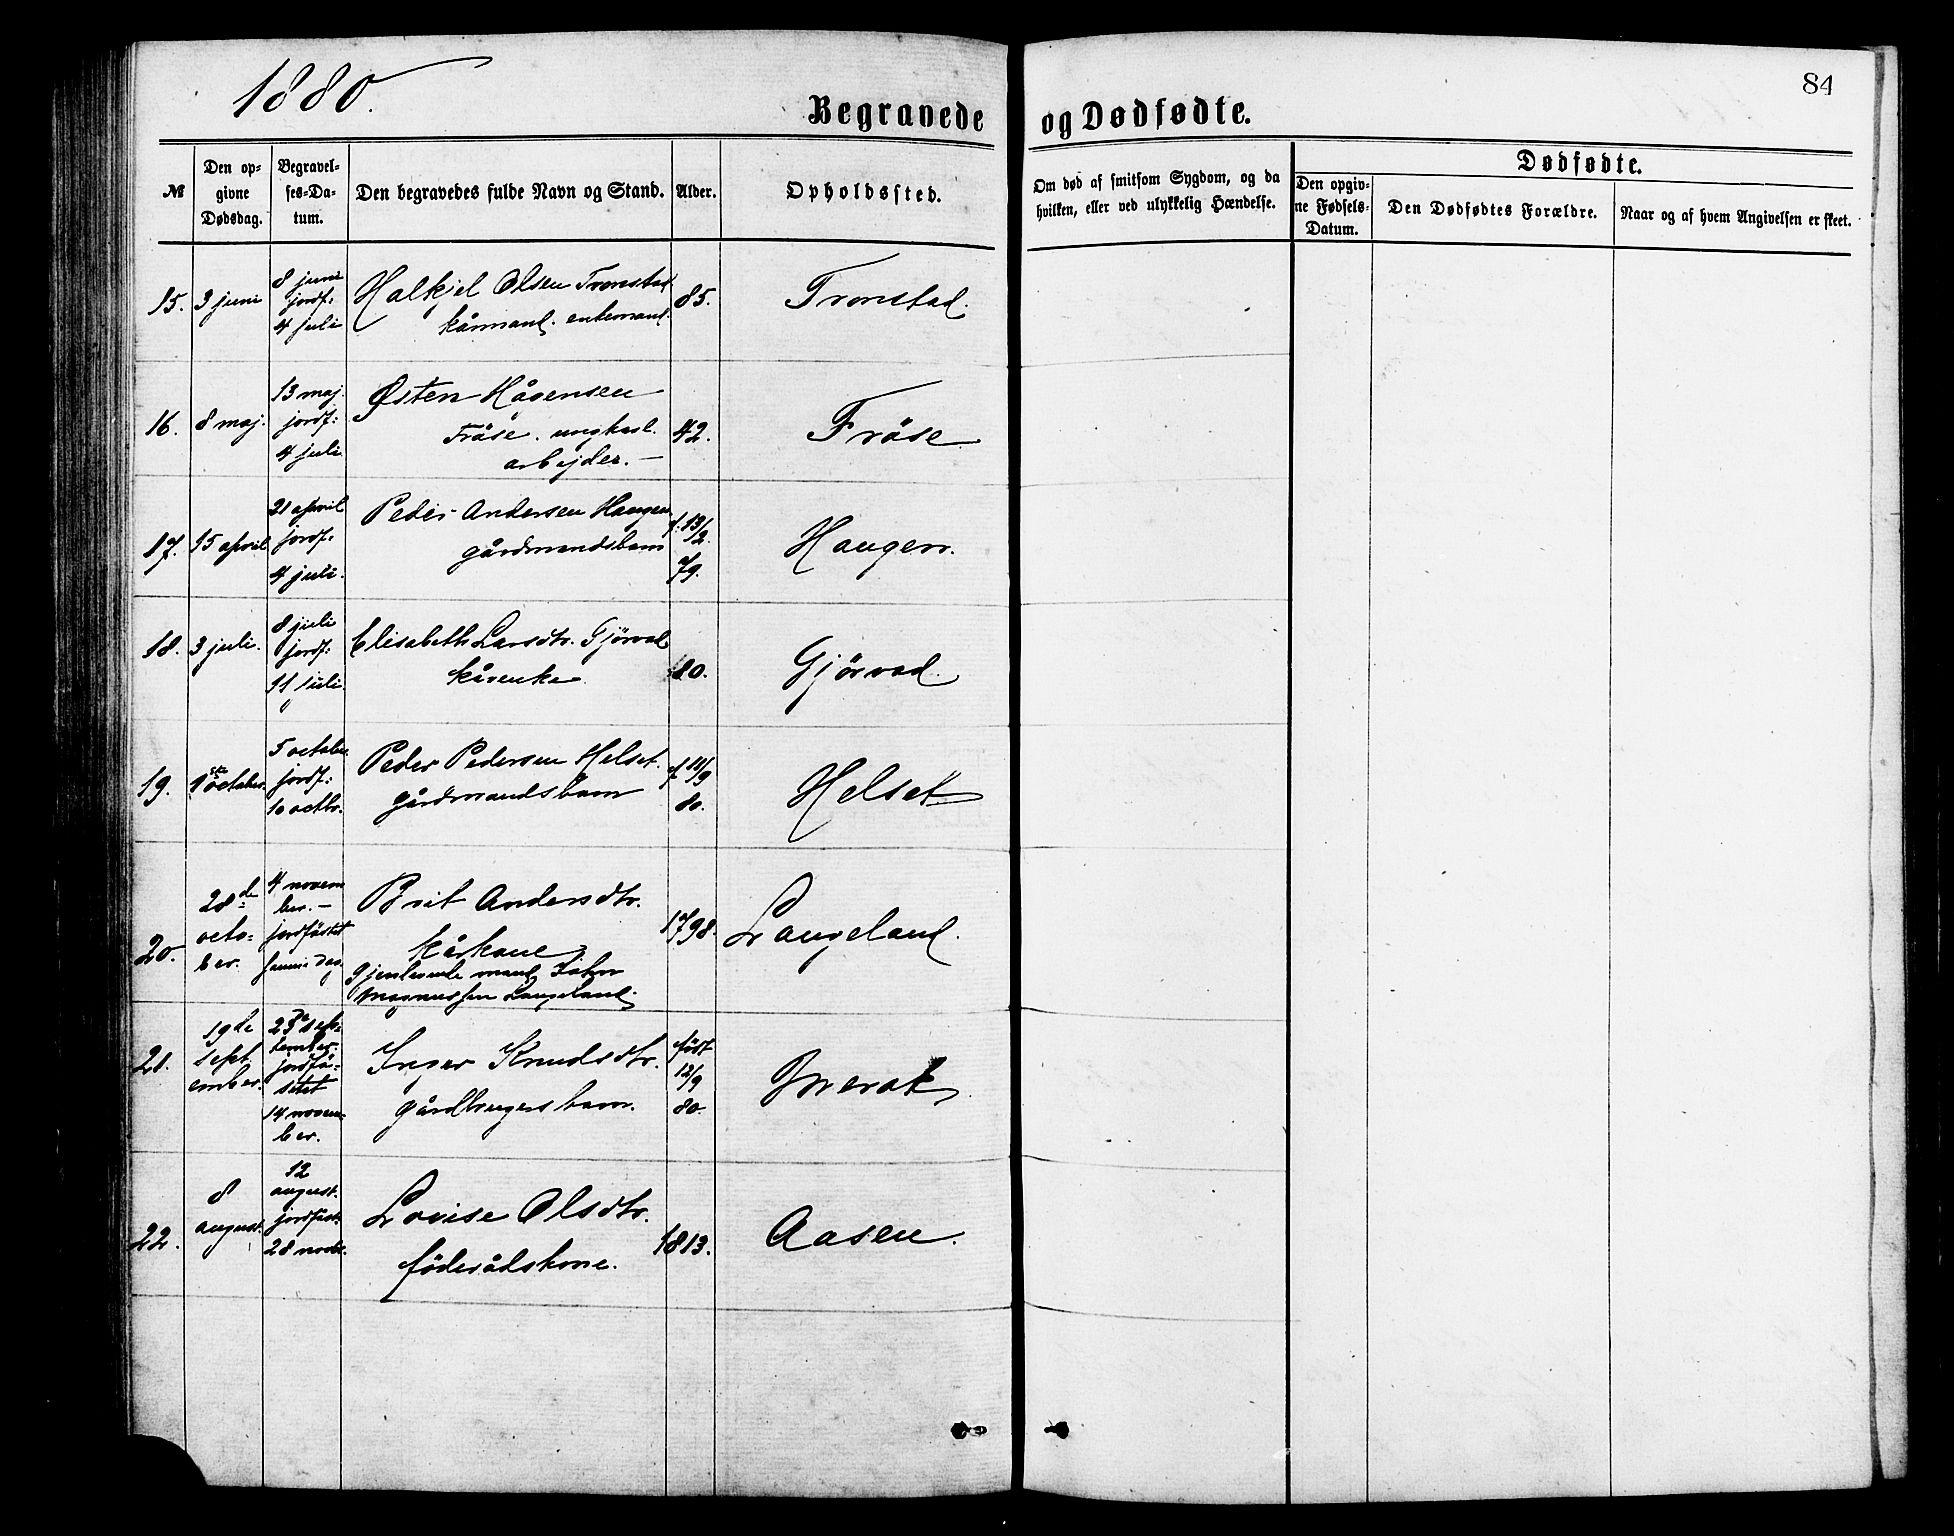 1880.
84
Begravede og Dødfødte.
№
Den opgivne Dødsdag.
Begravelses-Datum.
Den begravedes fulde Navn og Stand.
Alder.
Opholdssted.
Om død af smitsom Sygdom, og da hvilken, eller ved ulykkelig Hændelse.
Dødfødte.
Den opgivne Fødsels-Datum.
Den Dødfødtes Forældre.
Naar og af hvem Angivelsen er skeet.
15. 3 juni
8 juni
jordf:
4 juli
Halkjel Olsen Tronstad
kårmand. enkemand.
85.
Tronstad.
16. 8 maj.
13 maj.
jordf:
4 juli
Østen Hågensen
Fröse. ungkarl.
arbejder. —
42.
Fröse
17. 15 april
21 april
jordf:
4 juli.
Peder Andersen Haugen
gårdmandsbarn
f. 13/2
79.
Haugen.
18. 3 juli.
8 juli
jordf:
11 juli
Elisabeth Larsdtr. Gjörvad
kårenke
80.
Gjörvad.
19. 1ste october.
5 october
jordf:
10 octbr.
Peder Pedersen Helset.
gårdmandsbarn
f 11/9
80.
Helset
20.
28de
octo=
ber.
4 novem
ber. —
jordfästet
samme dag
Brit Andersdtr.
kårkone
gjenlevende mand John
Magnussen Langeland.
1798.
Langeland.
21.
19de
sept
ember.
23de sep=
tember.
jordfä=
stet
14 novem=
ber.
Inger Knudsdtr.
gårdbrugers barn.
födt
12/9
80.
Merok
22.
8
august.
12
august.
jordfäst.
28 novbr.
Lovise Olsdtr.
föderådskone.
1813.
Aasen.